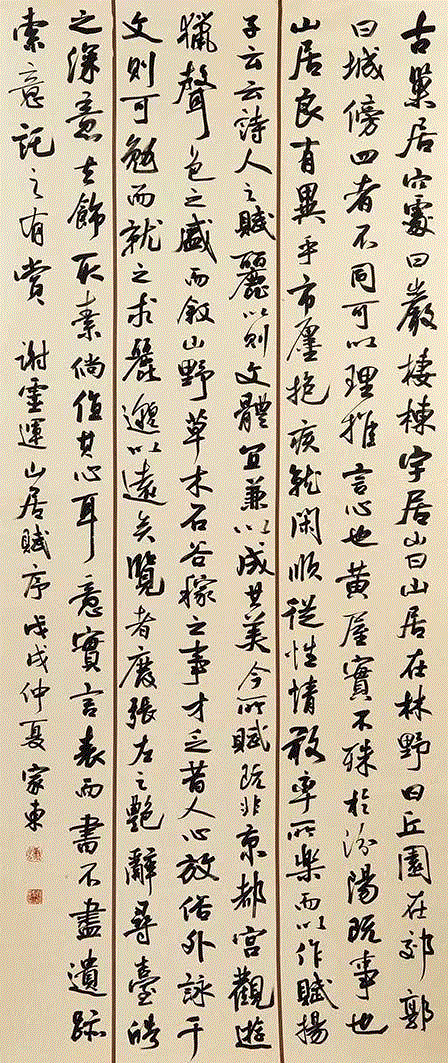 古巢居穴處曰巖棲棟宇居山曰山居在林野曰丘園在郊郭
曰城傍四者不同可以理推言心也黃屋實不殊於汾陽既事也
山居良有異乎市廛抱疾就閑順從性情敢率所樂而以作賦揚
子云云詩人之賦麗以則文體宜兼以成其美今所賦既非京都宮觀遊
獵聲色之盛而敘山野草木石谷稼之事才乏昔人心放俗外詠于
文則可勉而就之求麗邈以遠矣覽者廢張左之艷辭尋臺皓
之深意去飾取素倘值其心耳意實言表而書不盡遺跡
索意託之有賞 謝靈運山居賦序 戊戌仲夏 家東